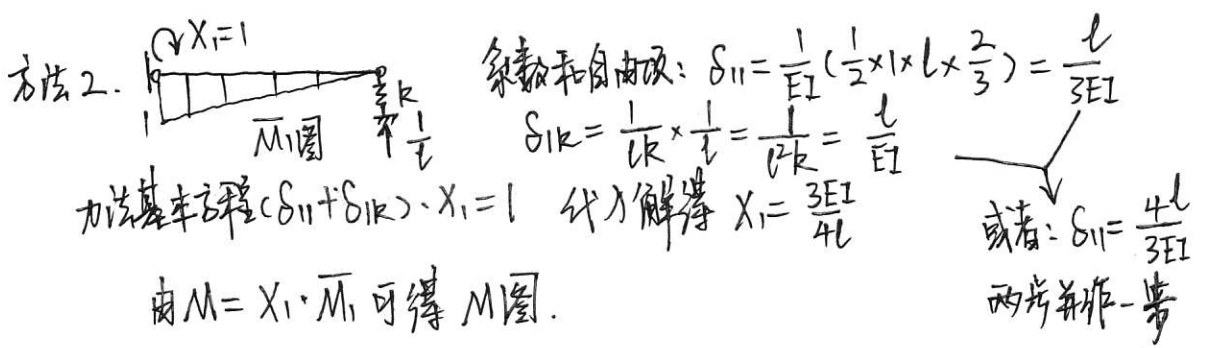 方法2. X₁=1 1 M̄₁图 k 1/l
系数和自由项: δ₁₁= 1/EI (1/2×1×l×2/3) = l/3EI
δ₁k= 1/lk × 1/l = 1/l²k = l/EI
力法基本方程(δ₁₁+δ₁k)·X₁=1 代入解得 X₁= 3EI/4l
或者: δ₁₁= 4l/3EI
两步并作一步
由M= X₁·M̄₁ 可得 M图.